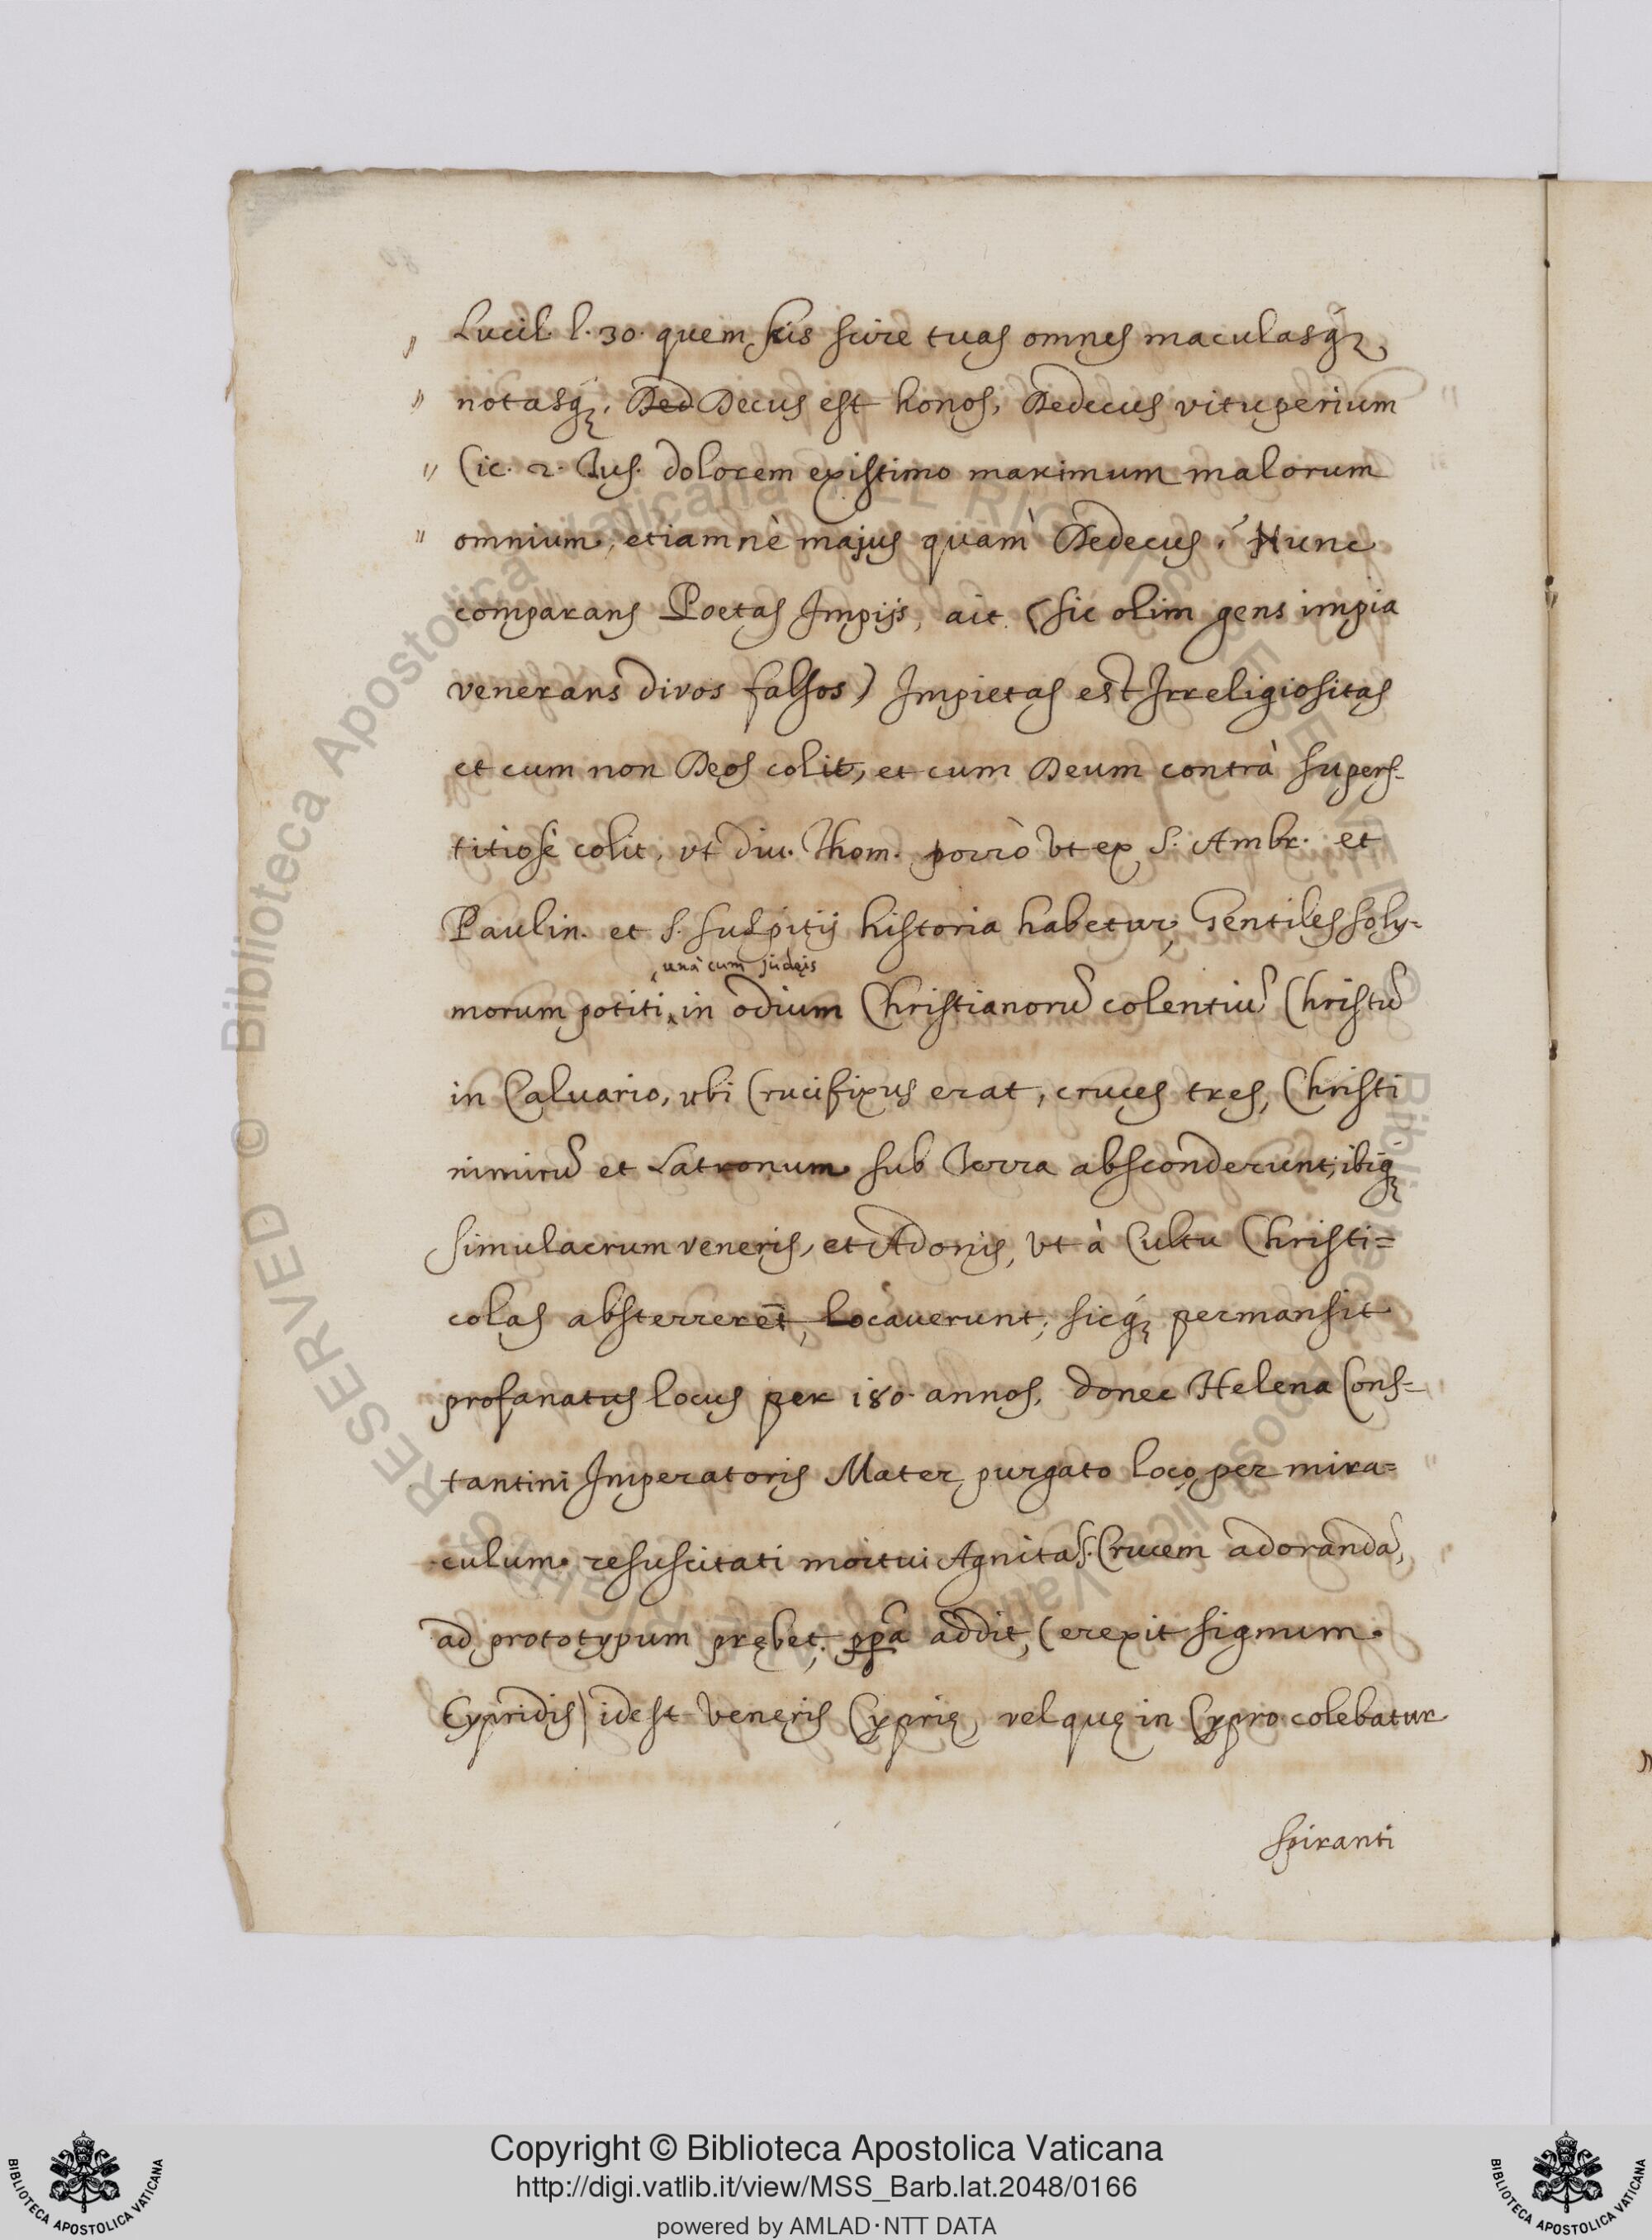 „ Lucil. l. 30. quem scis scire tuas omnes maculasq́ꝫ
„ notasq́ꝫ. Ded Decus est honos, Dedecus vituperium
„ Cic. 2. Tus. dolorem existimo maximum malorum
„ omnium, etiamnè majus quàm Dedecus. Nunc
comparans Poetas Impijs, ait (sic olim gens impia
venerans divos falsos) Impietas est Irreligiositas
et cum non Deos colit, et cum Deum contrà supers-
titiosè colit, vt diu. Thom. porrò vt ex S. Ambr. et
Paulin. et S. Sulpitij historia habetur, Gentiles soly-
unà cum judęis
morum potiti, in odium Christianorũ colentiũ Christũ
in Caluario, ubi Crucifixus erat, cruces tres, Christi
nimirũ et Latronum sub Terra absconderunt, ibiq́ꝫ
simulacrum veneris, et Adonis, vt à Cultu Christi=
colas absterrerēt, locauerunt; sicq́ꝫ permansit
profanatus locus per 180. annos, donec Helena Cons-
tantini Imperatoris Mater purgato loco, per mira=
culum resuscitati mortui Agnita S. Crucem adorandã,
ad prototypum prębet. ppã addit, (erexit signum
Cypridis) idest Veneris Cyprię, vel quę in Cypro colebatur
spiranti
Copyright © Biblioteca Apostolica Vaticana
http://digi.vatlib.it/view/MSS_Barb.lat.2048/0166
powered by AMLAD·NTT DATA
BIBLIOTECA APOSTOLICA VATICANA
BIBLIOTECA APOSTOLICA VATICANA